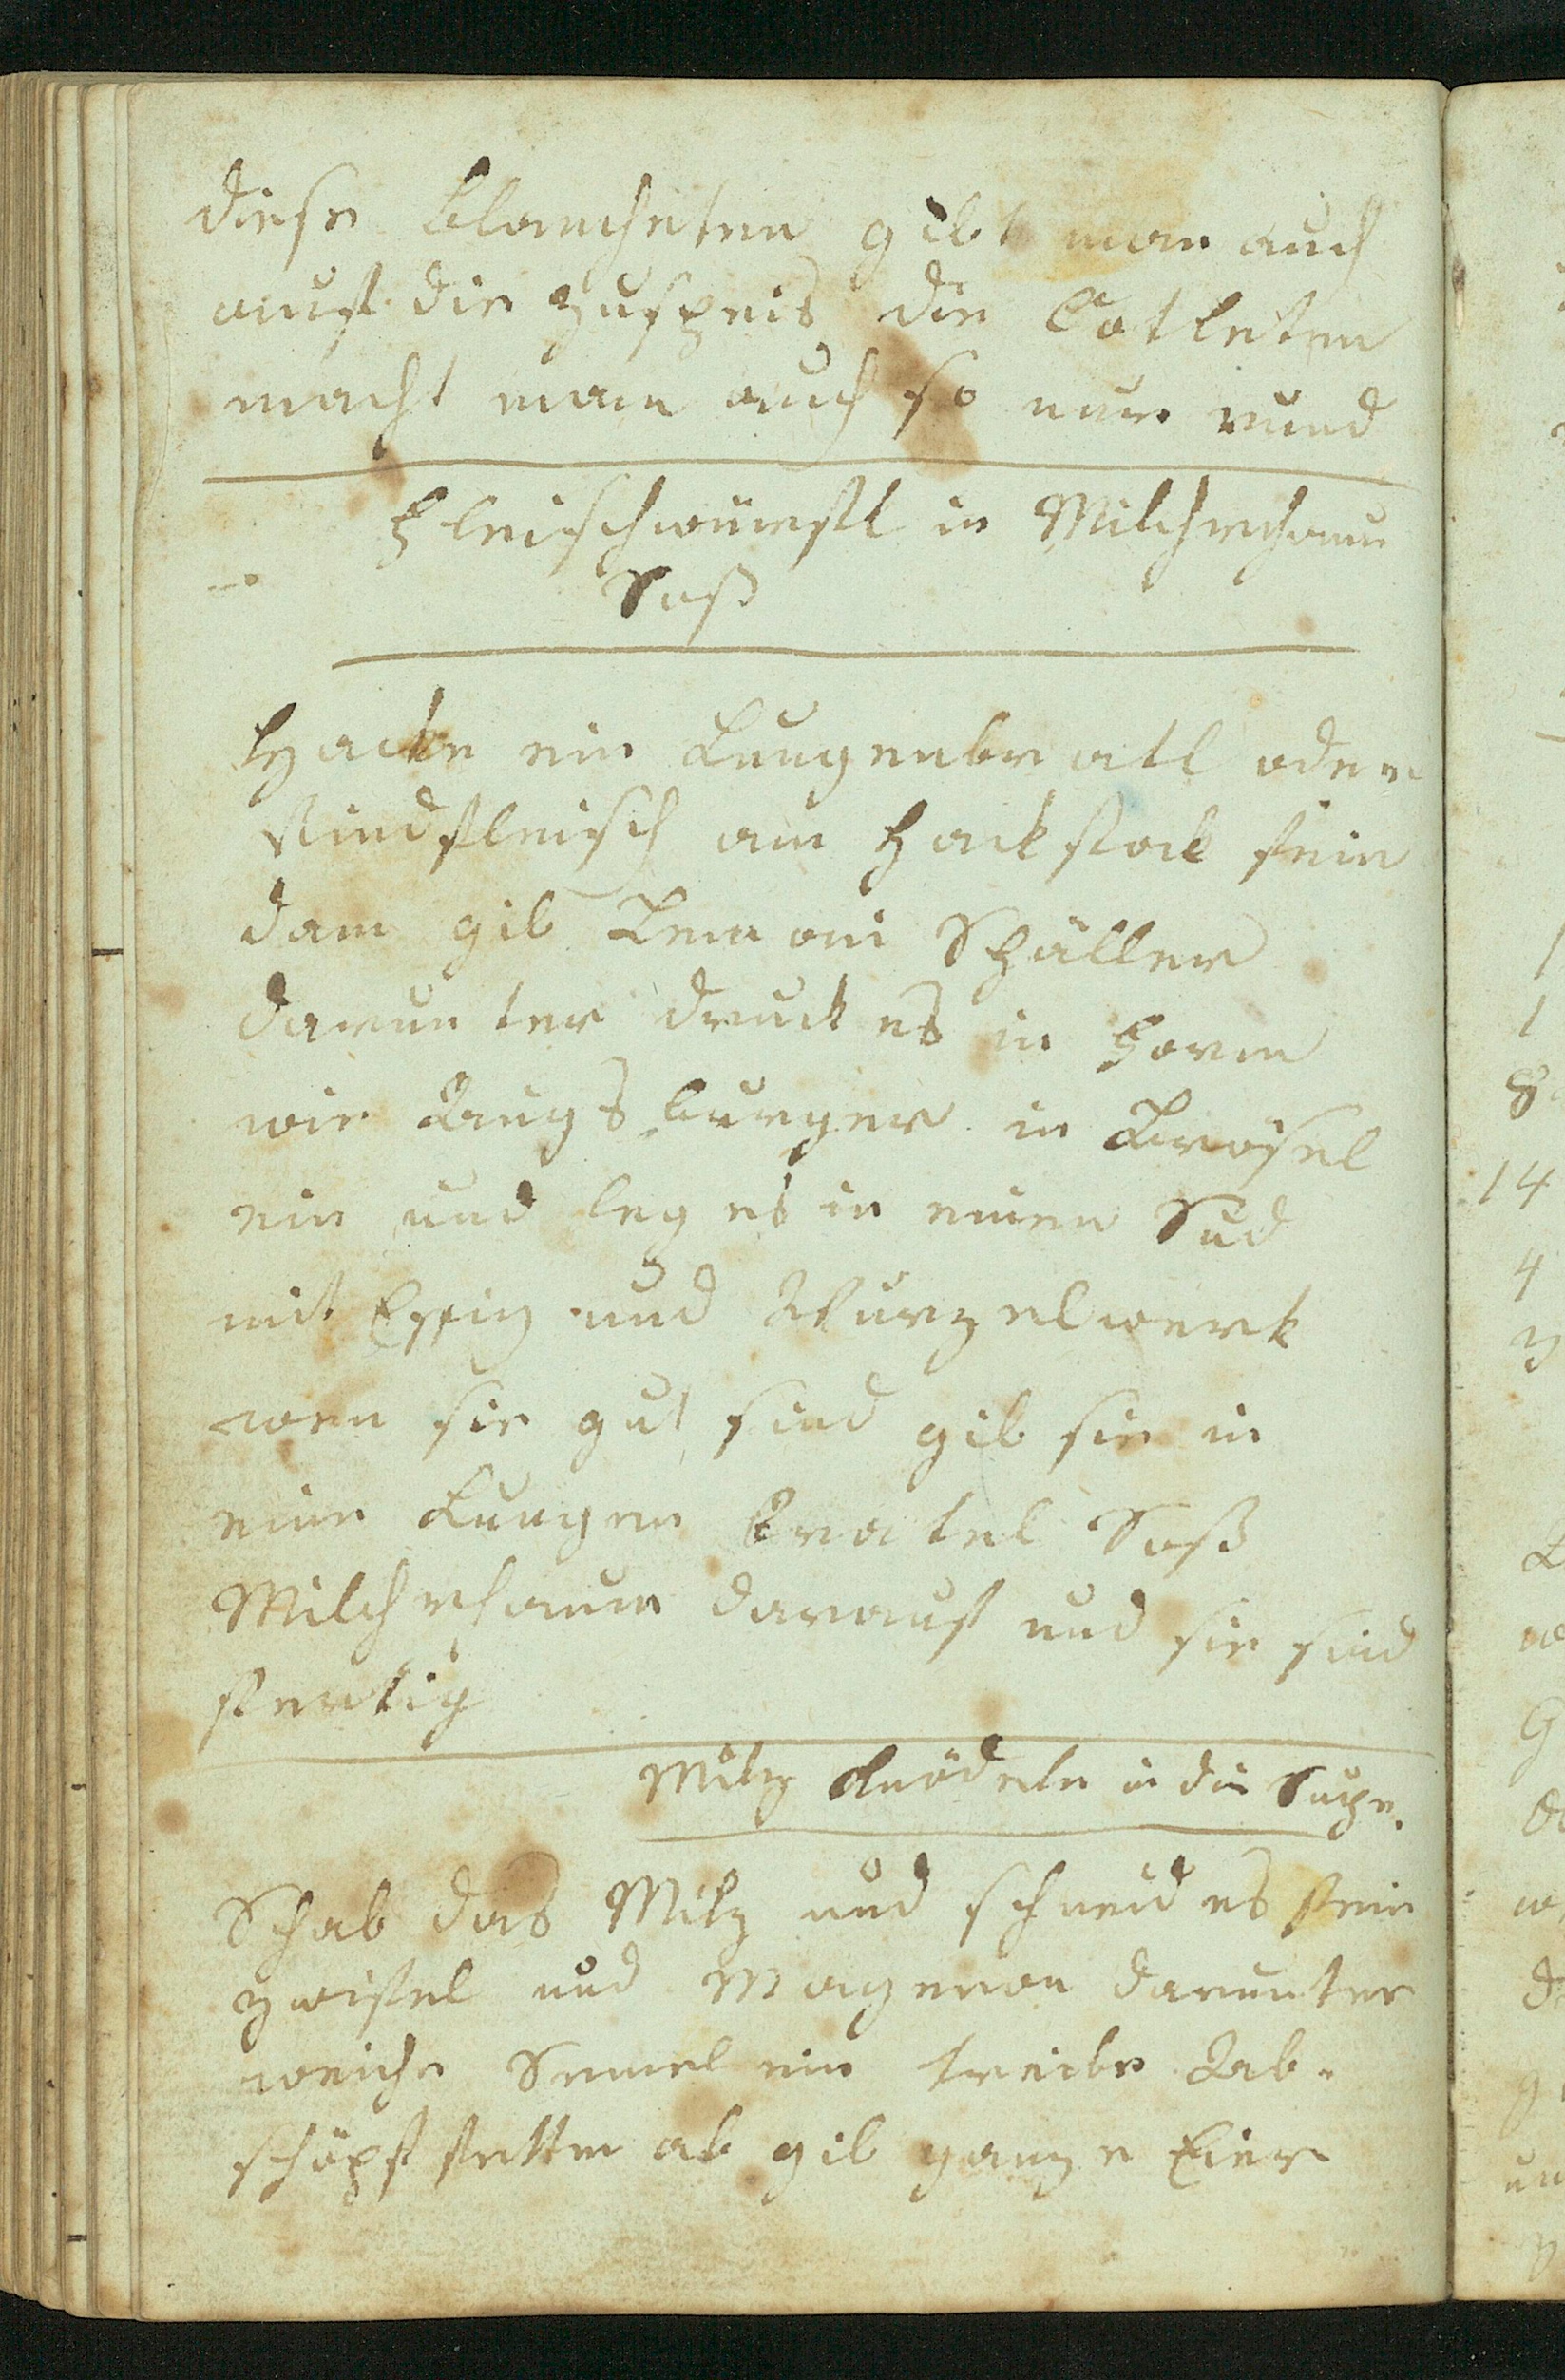 diese Blancheten gibt man auch
auf die Zuspeis die Cotleten
macht man auch so nur rund
Fleischwürstl in Milchrham
Soß
Hacke ein Lungenbratl oder
Rindfleisch am Hackstock fein
dann gib Lemoni Schäller
darunter druck es in Form
wie Augsburger in Brösel
ein und leg es in einen Sud
mit Essig und Wurzelwerk
wen sie gut sind gib sie in
eine Lungen Bratel Soß
Milchrhaum darauf und sie sind
fertig
Milz Knödeln in die Supe.
Schab das Milz und schneid es fein
zwifel und Mageron darunter
weiche Semel ein treibe Ab-
schöpf fetten ab gib ganze Eier
1
1
8
14
4